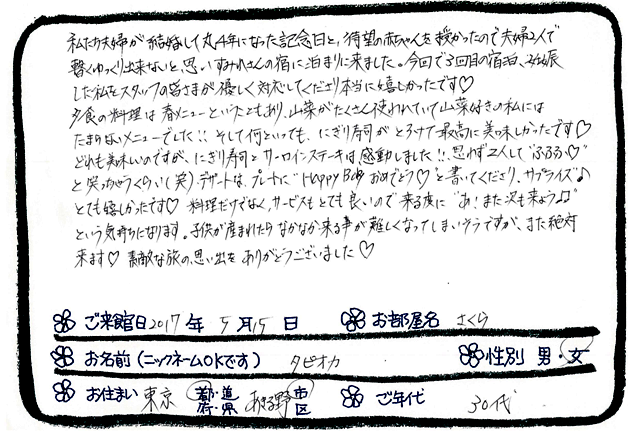 私たち夫婦が結婚して丸4年になった記念日と、待望の赤ちゃんを授かったので夫婦2人で
暫くゆっくり出来ないと思いすみれさんの宿に泊まりに来ました。今回で3回目の宿泊、妊娠
した私をスタッフの皆さまが優しく対応してくださり本当に嬉しかったです♡
夕食の料理は春メニューということもあり、山菜がたくさん使われていて山菜好きの私には
たまらないメニューでした!! そして何といっても、にぎり寿司がとろけて最高に美味しかったです♡
どれも美味しいのですが、にぎり寿司とサーロインステーキは感動しました!!、思わず2人して
と笑っちゃうくらい(笑)デザートは、プレートに"Happy Baby おめでとう♡"と書いてくださり、サプライズ♪
とても嬉しかったです♡ 料理だけでなく、サービスもとても良いので来る度に"あ!また次も来よう♫"
という気持ちになります。子供が産まれたらなかなか来る事が難しくなってしまいそうですが、また絶対
来ます♡ 素敵な旅の思い出をありがとうございました♡
ご来館日 2017 年 5 月 15 日 お部屋名 さくら
お名前(ニックネームOKです) タピオカ 性別 男・女
お住まい 東京 都・道 府・県 あきる野 市 区 ご年代 30代